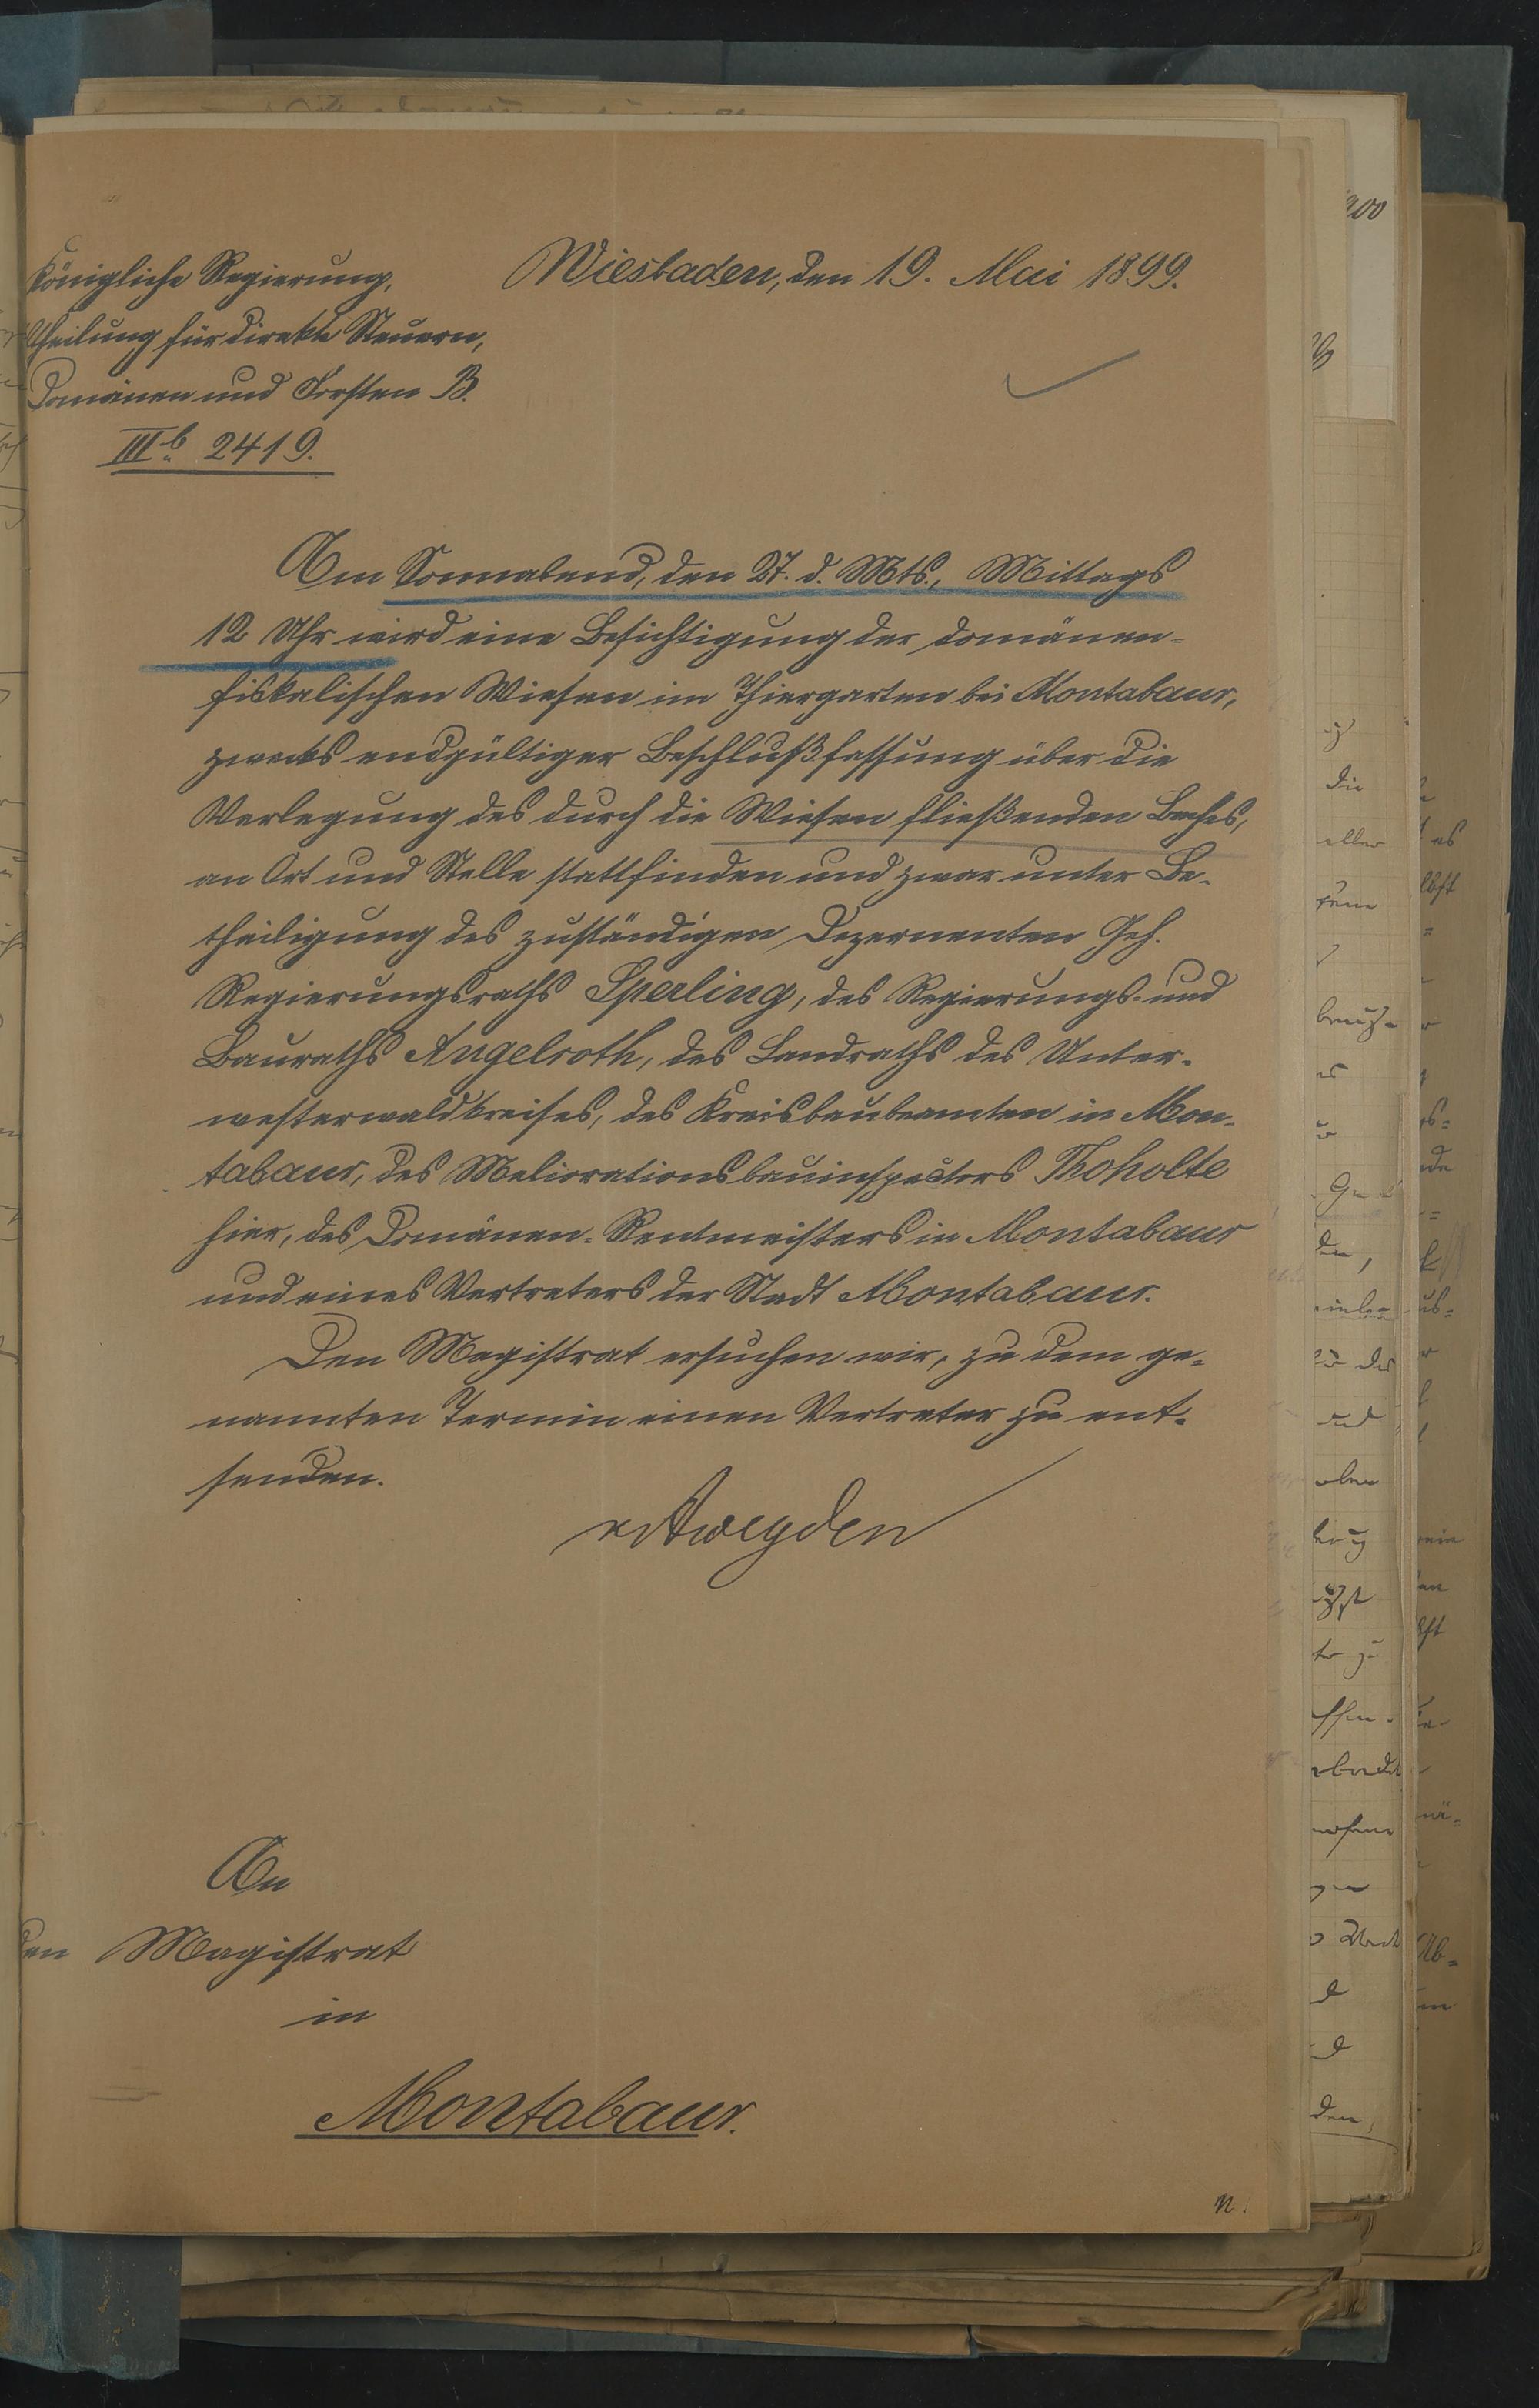 Königliche Regierung,
theilung für direkte Steuern,
Domänen und Forsten B.
IIIb. 2419.
Wiesbaden, den 19. Mai 1899.
Am Sonnabend, den 27. d. Mts., Mittags
12 Uhr wird eine Besichtigung der domänen-
fiskalischen Wiesen im Thiergarten bei Montabaur,
zwecks endgültiger Beschlußfassung über die
Verlegung des durch die Wiesen fließenden Baches,
an Ort und Stelle stattfinden und zwar unter Be-
theiligung des zuständigen Dezernenten Geh.
Regierungsraths Sperling, des Regierungs- und
Bauraths Angelroth, des Landraths des Unter-
westerwaldkreises, des Kreisbaubeamten in Mon-
tabaur, des Meliorationsbauinspectors Thoholte
hier, des Domänen-Rentmeisters in Montabaur
und eines Vertreters der Stadt Montabaur.
Den Magistrat ersuchen wir, zu dem ge-
nannten Termin einen Vertreter zu ent-
senden.
An
den Magistrat
in
Montabaur.
n.